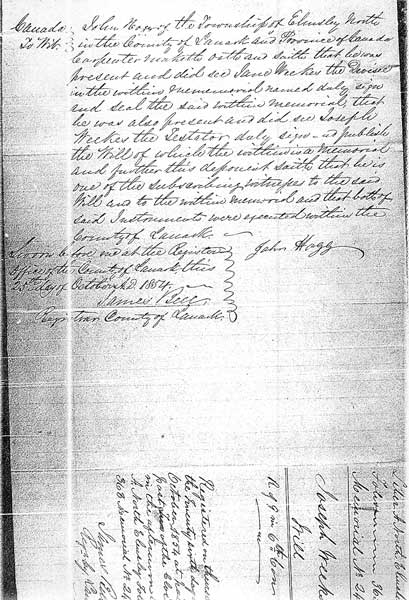 Canada
To Wit.
John Hogg of the Township of Elmsley North
in the County of Lanark and Province of Canada
Carpenter maketh oath and saith that he was
present and did see Jane Weekes the Devisee
in the within memorial named duly sign
and seal the said within memorial, that
he was also present and did see Joseph
Weekes the Testator duly sign and publish
the Will of which the within is a memorial
and further this deponent saith that he is
one of the subscribing witnesses to the said
Will and to the within memorial and that both of
said Instruments were executed within the
County of Lanark.
Sworn before me at the Registers
Office of the County of Lanark this
day of October A.D. 1854.
James Bell
Registrar County of Lanark.
John Hogg
Registered on
the
October 1854 at
past of the Clock
in the afternoon in
North Elmsley
Memorial No. 24
James
R of 9 in 6th Con
Will
Joseph Weekes
Memorial No. 24
Folio
Liber A North Elmsley